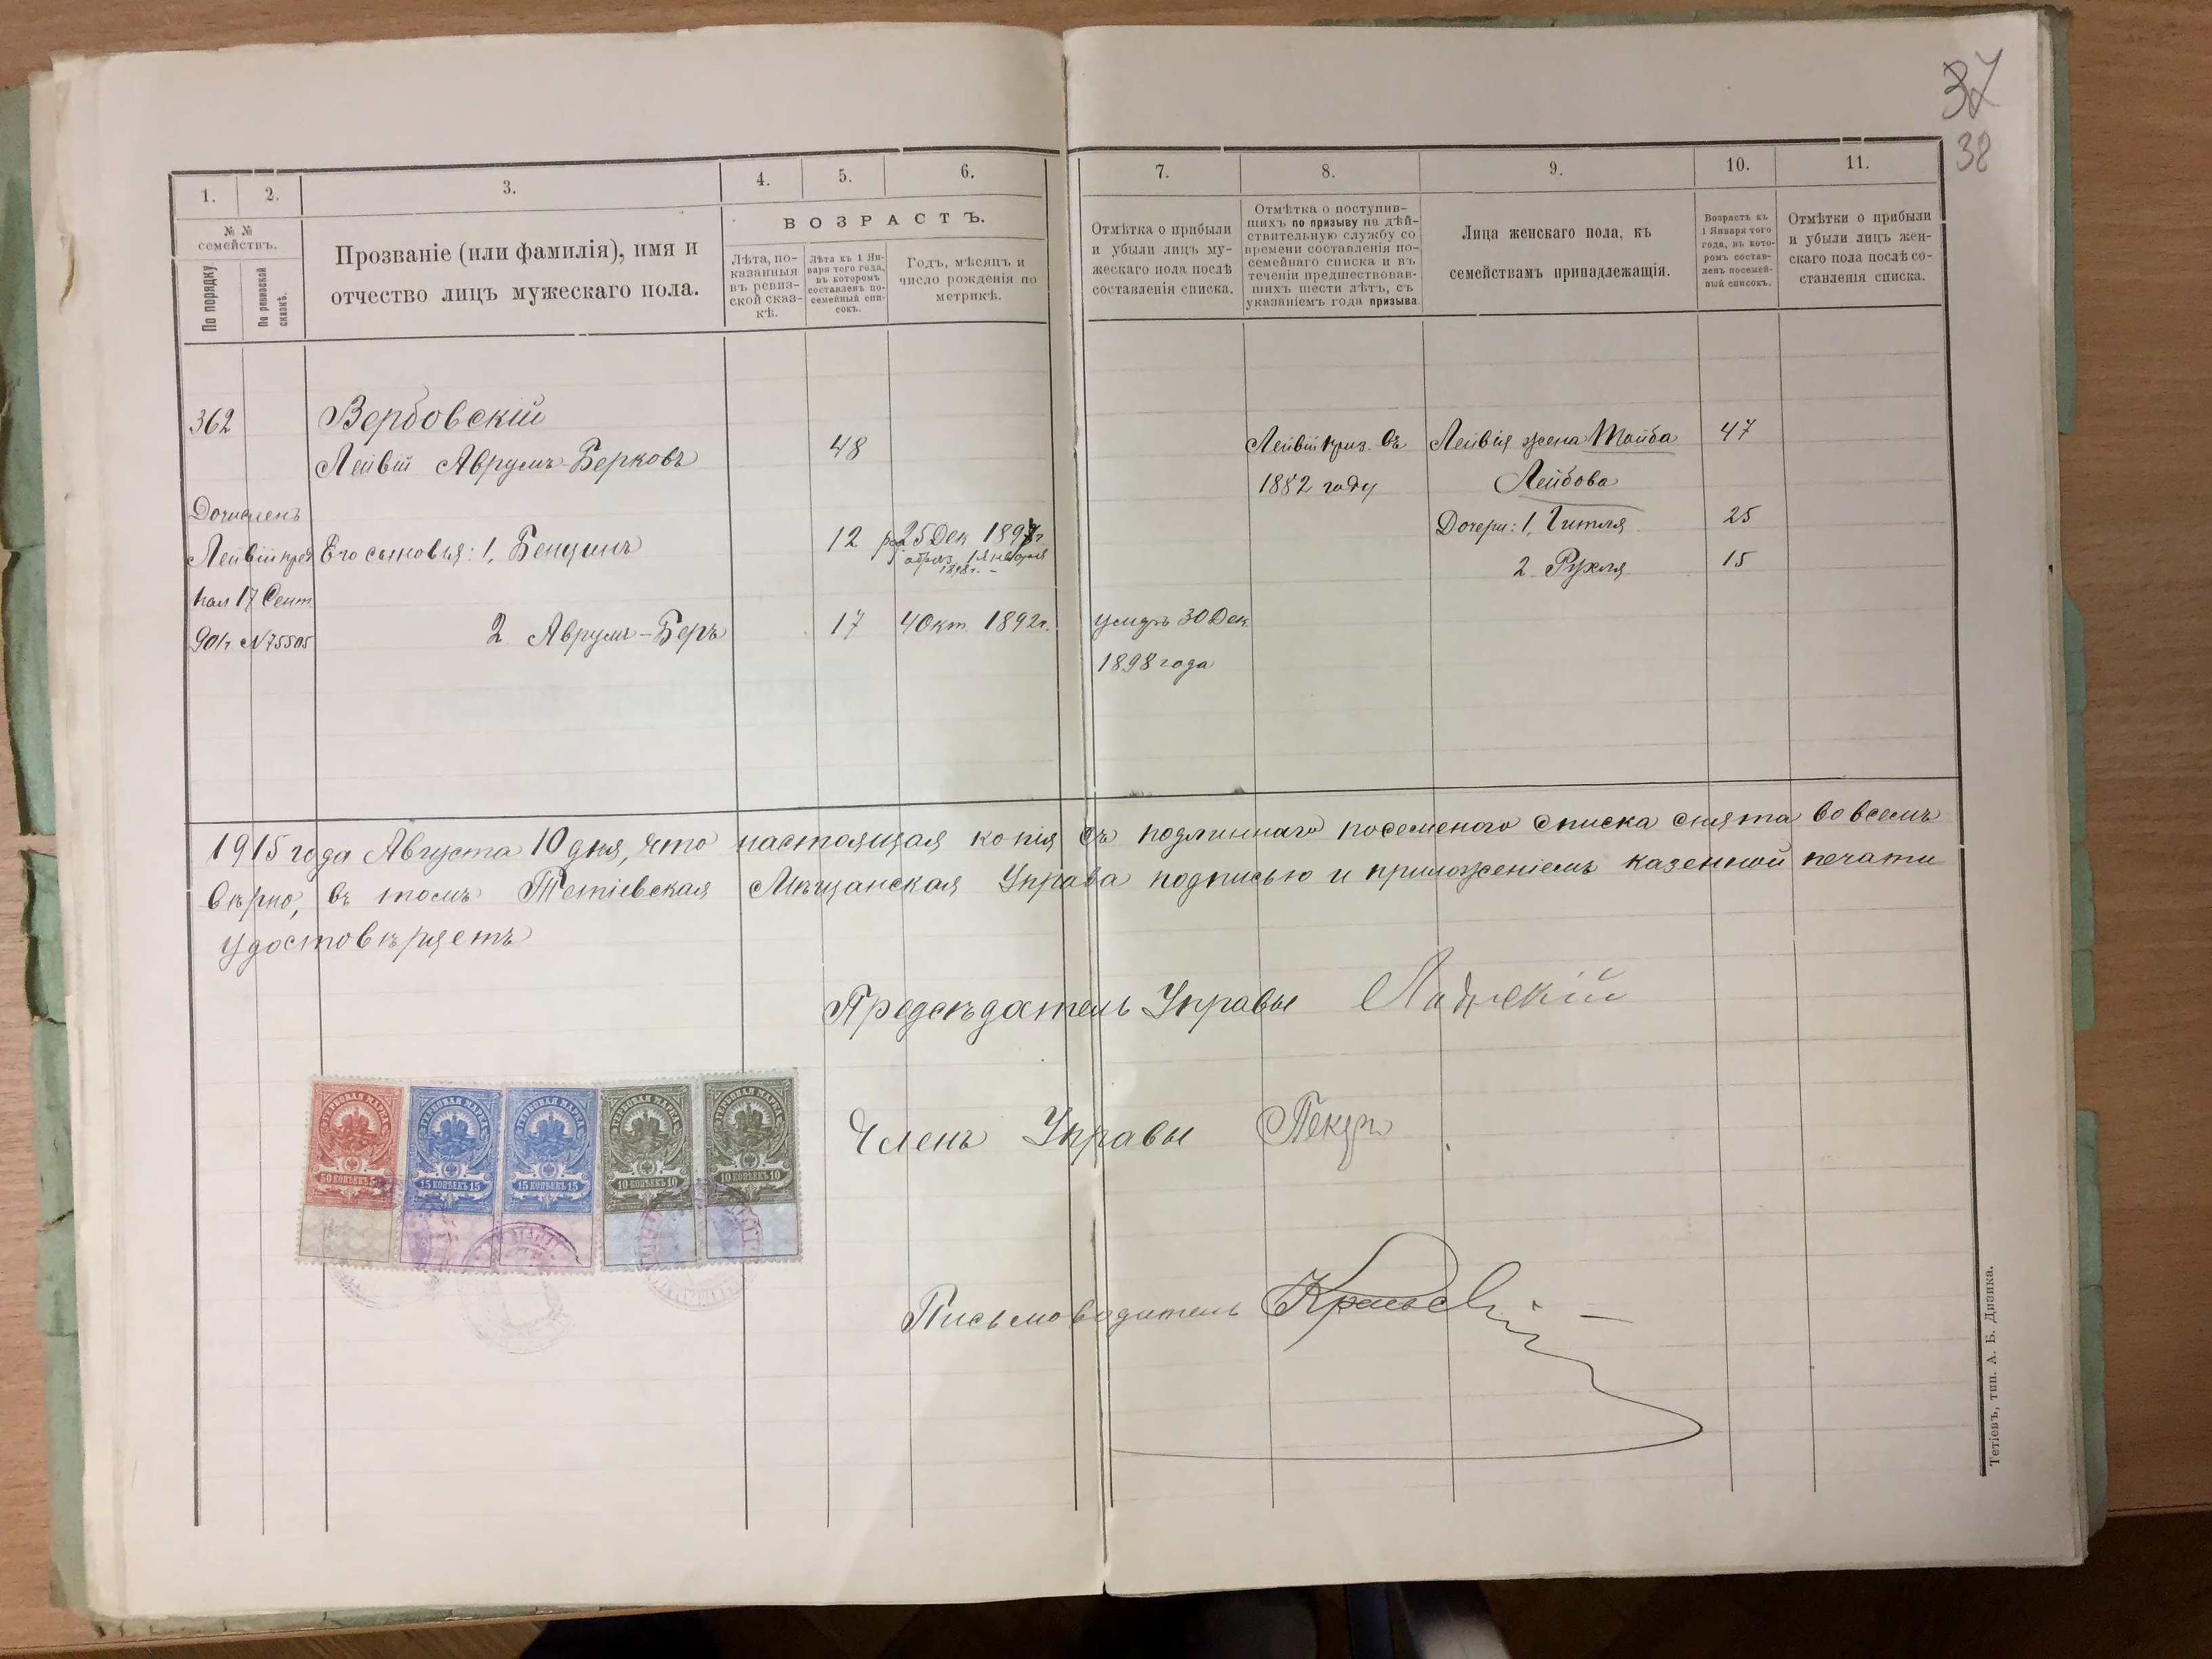 37
38
1.
2.
3.
4.
5.
6.
7.
8.
9.
10.
11.
№ №
семействъ.
По порядку
По ревизской
сказкѣ.
Прозваніе (или фамилія), имя и
отчество лицъ мужескаго пола.
ВОЗРАСТЪ.
Лѣта, по-
казанныя
въ ревиз-
ской сказ-
кѣ.
Лѣта къ 1 Ян-
варя того года,
въ которомъ
составленъ по-
семейный спи-
сокъ.
Годъ, мѣсяцъ и
число рожденія по
метрикѣ.
Отмѣтка о прибыли
и убыли лицъ му-
жескаго пола послѣ
составленія списка.
Отмѣтка о поступив-
шихъ по призыву на дѣй-
ствительную службу со
времени составленія по-
семейнаго списка и въ
теченіи предшествовав-
шихъ шести лѣтъ, съ
указаніемъ года призыва
Лица женскаго пола, къ
семействамъ принадлежащія.
Возрастъ къ
1 Января того
года, въ кото-
ромъ состав-
ленъ посемей-
ный списокъ.
Отмѣтки о прибыли
и убыли лицъ жен-
скаго пола послѣ со-
ставленія списка.
362
Вербовскій
Лейвій Аврумъ-Берковъ
48
Лейвій приз. въ
1882 году
Лейвія жена Тойба
47
Лейбова
Дочислен
Лейвій
пал 17 Сент.
901г. №75505
Его сыновья: 1, Бенціинъ
12
25 Дек 1897г.
обрѣз. 1 января
1898г. -
Дочери: 1, Гитля
25
2. Рухля
15
2. Аврумъ-Беръ
17
4 Окт. 1892г.
умеръ 30 Дек.
1898 года
1915 года Августа 10 дня, что настоящая копія съ подлиннаго посемейнаго списка снята во всемъ
вѣрно, въ томъ Тетіевская Мѣщанская Управа подписью и приложеніемъ казенной печати
удостовѣряетъ
Предсѣдатель Управы
Членъ Управы Пекеръ
Письмоводитель
ГЕРБОВАЯ МАРКА
50 КОПѢЕКЪ 50
ГЕРБОВАЯ МАРКА
15 КОПѢЕКЪ 15
ГЕРБОВАЯ МАРКА
15 КОПѢЕКЪ 15
ГЕРБОВАЯ МАРКА
10 КОПѢЕКЪ 10
ГЕРБОВАЯ МАРКА
10 КОПѢЕКЪ 10
Тетіевъ, тип. А. Б. Дизика.